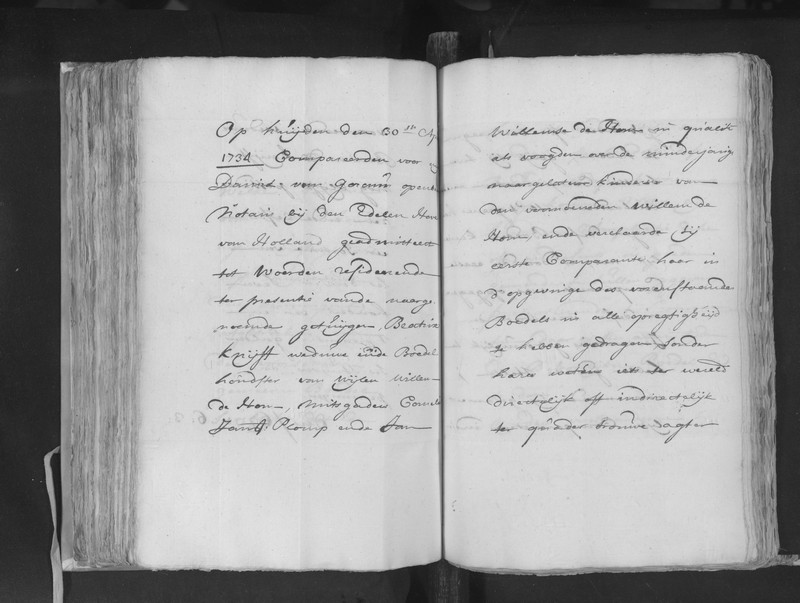 Op huijden den 30 st Ap
1734 Compareerden voor
Daniel van Gorcum openb
Notaris bij den Edelen Hove
van Holland geadmitteert
tot Woerden residerende
ter presentie vande naarge
noemde getuijgen, Beatrix
Knijff weduwe ende Boedel
houdster van wijlen Willem
de Hom, mitsgaders Cornelis
Jansz. Plomp ende Jan
Willemse de Hom in qualit
als voogden over de minderjarige
naargelaten kinderen van
den vernoemden Willem de
Hom, ende verclaarde sij
eerste Comparante haar in
d'opgevinge des voorenstaande
Boedels in alle opregtigheijd
te hebben gedragen, sonder
hare wetens iets ter wereld
directelijk off indirectelijk
ter quader trouwe agter